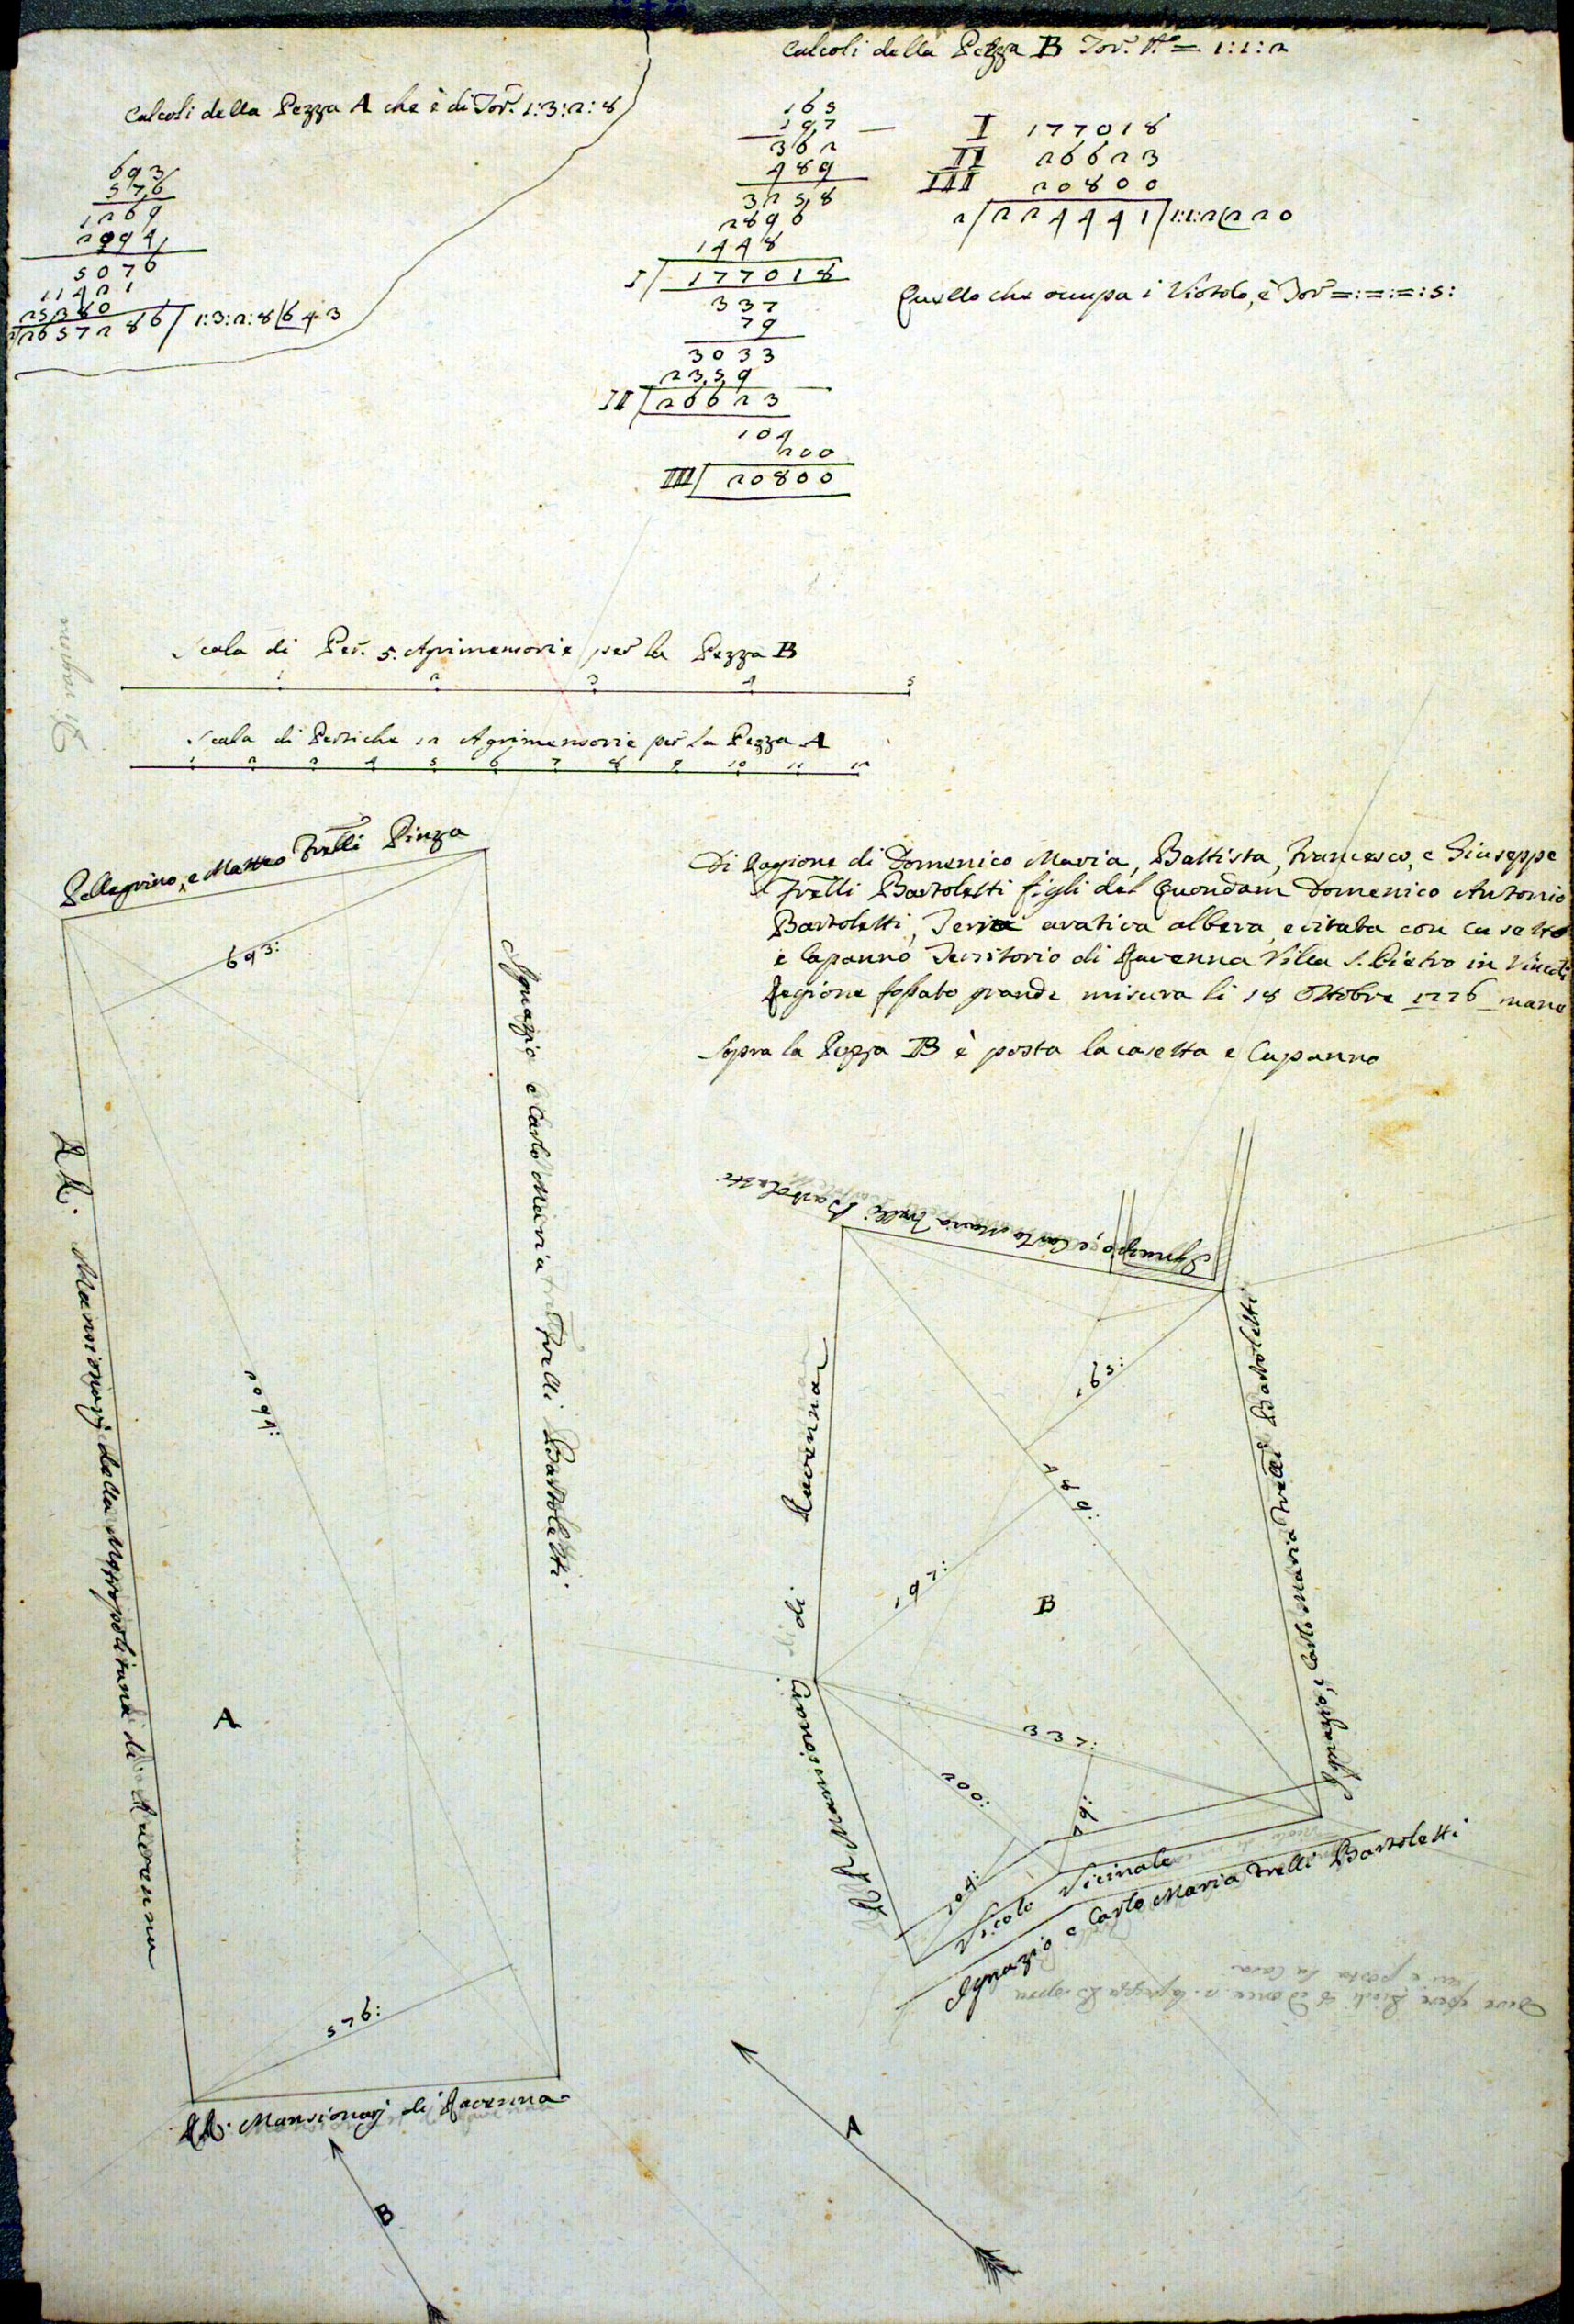 Calcoli della Pezza A che è di Tor. 1:3:2:8
693
576
1269
2094
5076
11421
25380
2/2657286/1:3:2:8/643
Calcoli della Pezza B Tor. N.º = 1:1:2
165
197
362
489
3258
2896
1448
I/ 177018
337
79
3033
2359
II/ 26623
104
200
III/ 20800
I 177018
II 26623
III 20800
2/224441/1:1:2/220
Quello che occupa i Viotolo, è Tor =:=:=:5:
Scala di Per. 5. Agrimensorie per la Pezza B
1 2 3 4 5
Scala di Pertiche 12 Agrimensorie per la Pezza A
1 2 3 4 5 6 7 8 9 10 11 12
Di Ragione di Domenico Maria, Battista, Francesco, e Giuseppe
Frelli Bartoletti figli del Quondam Domenico Antonio
Bartoletti, Terra arativa albera, e vitata con casetta
e Capanno Territorio di Ravenna Villa S. Pietro in Vincoli
Regione fossato grande misura li 18 Ottobre 1776
Sopra la Pezza B è posta la casetta e Capanno
Pellegrino, e Matteo Frelli Pinza
693:
Ignazio e Carlo Maria Frelli Bartoletti
RR. Mansionarj della Metropolitana di Ravenna
2094:
A
576:
RR. Mansionarj di Ravenna
B
Ignazio, e Carlo Maria Frelli Bartoletti
165:
489:
197:
B
RR. Mansionarj di Ravenna
Ignazio, e Carlo Maria Frelli Bartoletti
337:
200:
79:
104:
Vicolo Vicinale
Ignazio e Carlo Maria Frelli Bartoletti
A